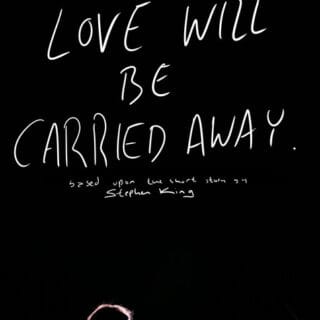 LOVE WILL
BE
CARRIED AWAY.
based upon the short story by
Stephen King